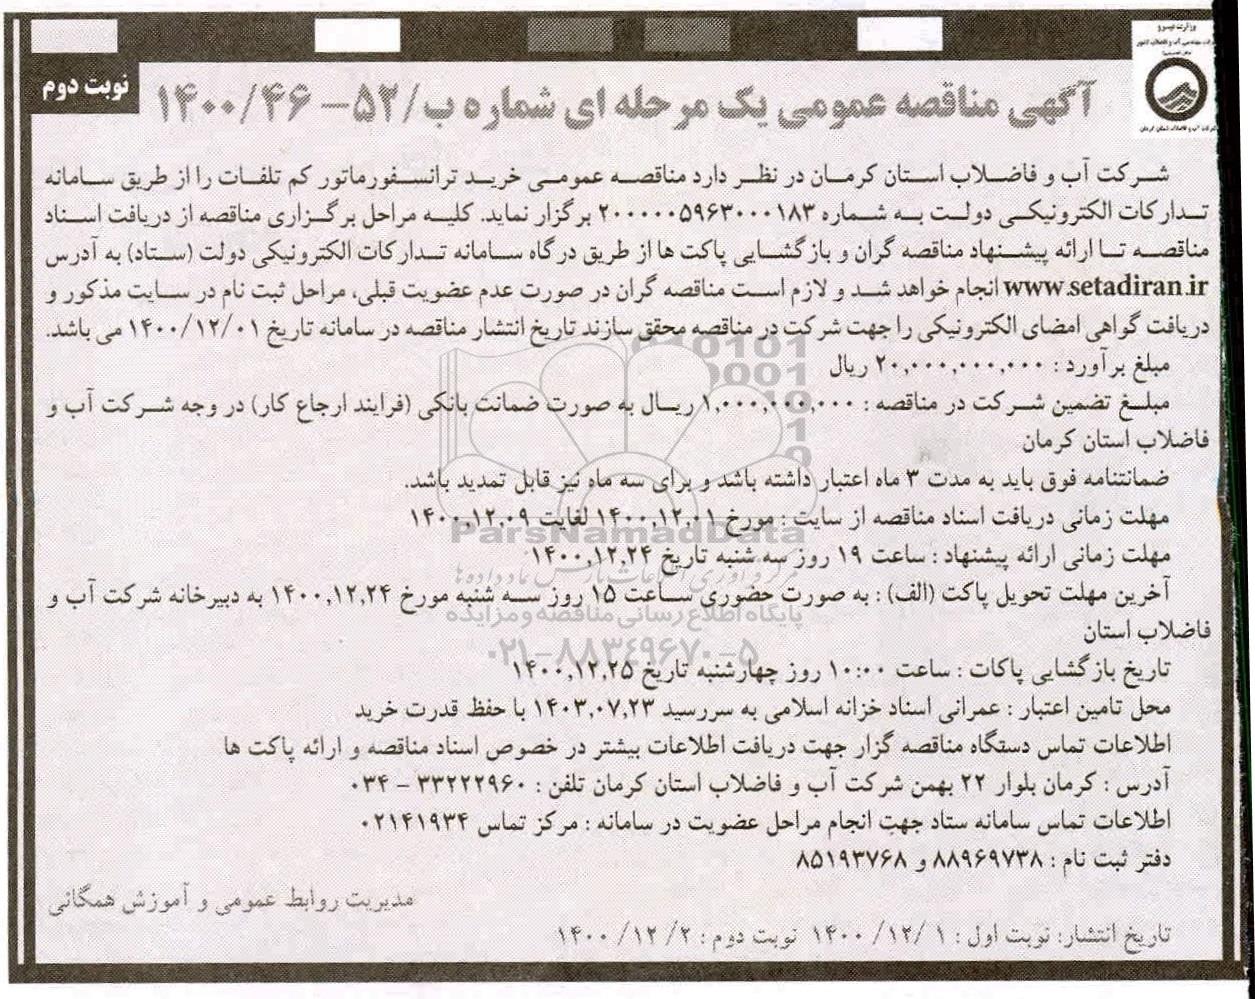 وزارت نیرو
شرکت آب و فاضلاب استان کرمان
نوبت دوم
آگهی مناقصه عمومی یک مرحله ای شماره ب/۵۲- ۱۴۰۰/۴۶
شرکت آب و فاضلاب استان کرمان در نظر دارد مناقصه عمومی خرید ترانسفورماتور کم تلفات را از طریق سامانه
تدارکات الکترونیکی دولت به شماره ۲۰۰۰۰۰۵۹۶۳۰۰۰۱۸۳ برگزار نماید. کلیه مراحل برگزاری مناقصه از دریافت اسناد
مناقصه تا ارائه پیشنهاد مناقصه گران و بازگشایی پاکت ها از طریق درگاه سامانه تدارکات الکترونیکی دولت (ستاد) به آدرس
www.setadiran.ir انجام خواهد شد و لازم است مناقصه گران در صورت عدم عضویت قبلی، مراحل ثبت نام در سایت مذکور و
دریافت گواهی امضای الکترونیکی را جهت شرکت در مناقصه محقق سازند تاریخ انتشار مناقصه در سامانه تاریخ ۱۴۰۰/۱۲/۰۱ می باشد.
مبلغ برآورد : ۲۰,۰۰۰,۰۰۰,۰۰۰ ریال
مبلغ تضمین شرکت در مناقصه : ۱,۰۰۰,۰۰۰,۰۰۰ ریال به صورت ضمانت بانکی (فرایند ارجاع کار) در وجه شرکت آب و
فاضلاب استان کرمان
ضمانتنامه فوق باید به مدت ۳ ماه اعتبار داشته باشد و برای سه ماه نیز قابل تمدید باشد.
مهلت زمانی دریافت اسناد مناقصه از سایت : مورخ ۱۴۰۰,۱۲,۰۱ لغایت ۱۴۰۰,۱۲,۰۹
ParsNamadData
مهلت زمانی ارائه پیشنهاد : ساعت ۱۹ روز سه شنبه تاریخ ۱۴۰۰,۱۲,۲۴
مرکز فرآوری اطلاعات پارس نماد داده ها
آخرین مهلت تحویل پاکت (الف) : به صورت حضوری ساعت ۱۵ روز سه شنبه مورخ ۱۴۰۰,۱۲,۲۴ به دبیرخانه شرکت آب و
پایگاه اطلاع رسانی مناقصه و مزایده
فاضلاب استان
۰۲۱-۸۸۳۴۹۶۷۰-۵
تاریخ بازگشایی پاکات : ساعت ۱۰:۰۰ روز چهارشنبه تاریخ ۱۴۰۰,۱۲,۲۵
محل تامین اعتبار : عمرانی اسناد خزانه اسلامی به سررسید ۱۴۰۳,۰۷,۲۳ با حفظ قدرت خرید
اطلاعات تماس دستگاه مناقصه گزار جهت دریافت اطلاعات بیشتر در خصوص اسناد مناقصه و ارائه پاکت ها
آدرس : کرمان بلوار ۲۲ بهمن شرکت آب و فاضلاب استان کرمان تلفن : ۳۳۲۲۲۹۶۰ - ۰۳۴
اطلاعات تماس سامانه ستاد جهت انجام مراحل عضویت در سامانه : مرکز تماس ۰۲۱۴۱۹۳۴
دفتر ثبت نام : ۸۸۹۶۹۷۳۸ و ۸۵۱۹۳۷۶۸
مدیریت روابط عمومی و آموزش همگانی
تاریخ انتشار: نوبت اول : ۱ /۱۲/ ۱۴۰۰ نوبت دوم : ۱۴۰۰ /۱۲ /۲